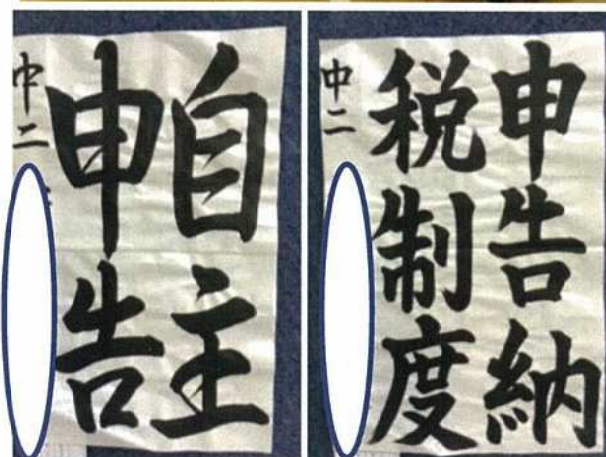 自主
申告
中二
申告納
税制度
中二